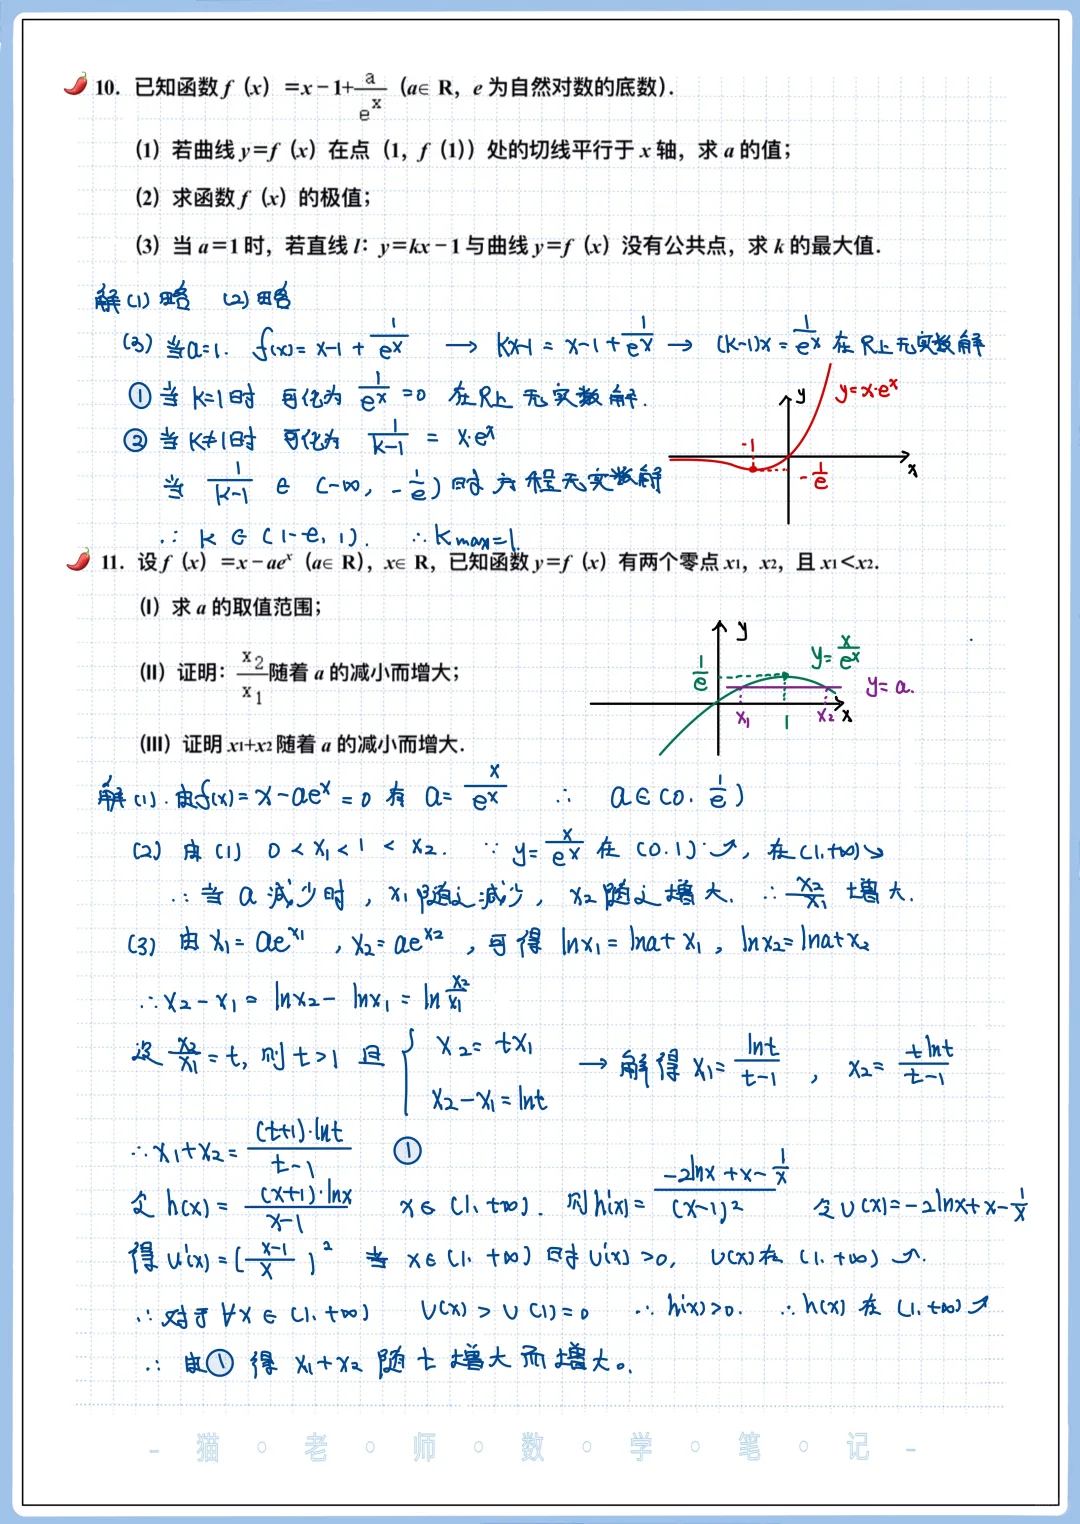 10. 已知函数 f（x）=x-1+a/e^x（a∈R，e 为自然对数的底数）.
（1）若曲线 y=f（x）在点（1，f（1））处的切线平行于 x 轴，求 a 的值；
（2）求函数 f（x）的极值；
（3）当 a=1 时，若直线 l：y=kx-1 与曲线 y=f（x）没有公共点，求 k 的最大值.
解(1) 略 (2) 略
(3) 当a=1. f(x)=x-1+1/e^x → kx-1=x-1+1/e^x → (k-1)x=1/e^x 在R上无实数解
① 当 k=1时 可化为 1/e^x=0 在R上 无实数解.
② 当 k≠1时 可化为 1/(k-1) = x·e^x
当 1/(k-1) ∈ (-∞, -1/e) 时 方程无实数解
∴ k∈(1-e, 1). ∴ kmax=1.
y
y=x·e^x
-1
x
-1/e
11. 设 f（x）=x-ae^x（a∈R），x∈R，已知函数 y=f（x）有两个零点 x1，x2，且 x1<x2.
（I）求 a 的取值范围；
（II）证明：x2/x1 随着 a 的减小而增大；
（III）证明 x1+x2 随着 a 的减小而增大.
y
y=x/e^x
1/e
y=a.
x1 1 x2 x
解(1). 由f(x)=x-ae^x=0 有 a=x/e^x ∴ a∈(0, 1/e)
(2) 由(1) 0<x1<1<x2. ∵ y=x/e^x 在(0.1)↗, 在(1.+∞)↘
∴当 a 减少时, x1随之减少, x2随之增大. ∴ x2/x1 增大.
(3) 由 x1=ae^x1, x2=ae^x2, 可得 lnx1=lna+x1, lnx2=lna+x2
∴x2-x1=lnx2-lnx1=ln x2/x1
设 x2/x1=t, 则 t>1 且 { x2=tx1
x2-x1=lnt → 解得 x1=lnt/(t-1), x2=tlnt/(t-1)
∴x1+x2=(t+1)·lnt/(t-1) ①
令 h(x)=(x+1)·lnx/(x-1) x∈(1.+∞). 则h'(x)=(-2lnx+x-1/x)/(x-1)² 令u(x)=-2lnx+x-1/x
得 u'(x)=((x-1)/x)² 当 x∈(1.+∞)时 u'(x)>0, u(x)在(1.+∞)↗.
∴对于∀x∈(1.+∞) u(x)>u(1)=0 ∴h'(x)>0. ∴h(x)在(1.+∞)↗
∴ 由① 得 x1+x2 随 t 增大而增大。
- 猫·老·师·数·学·笔·记 -